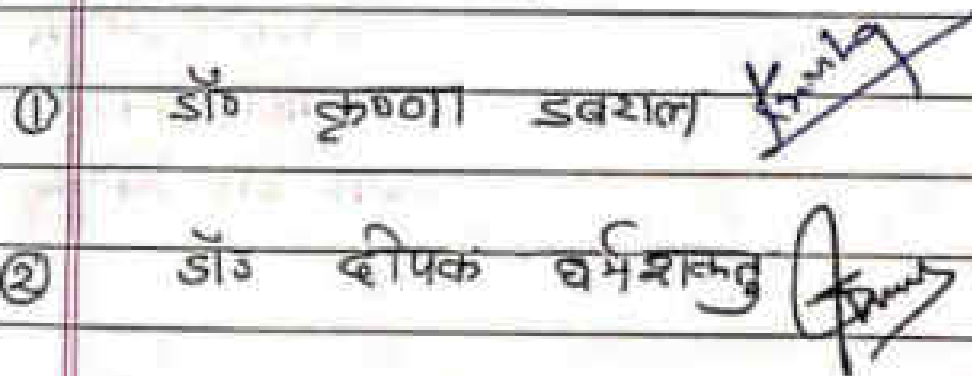 ① डॉ० कृष्णा डबराल
② डॉ० दीपक धर्मशक्तु